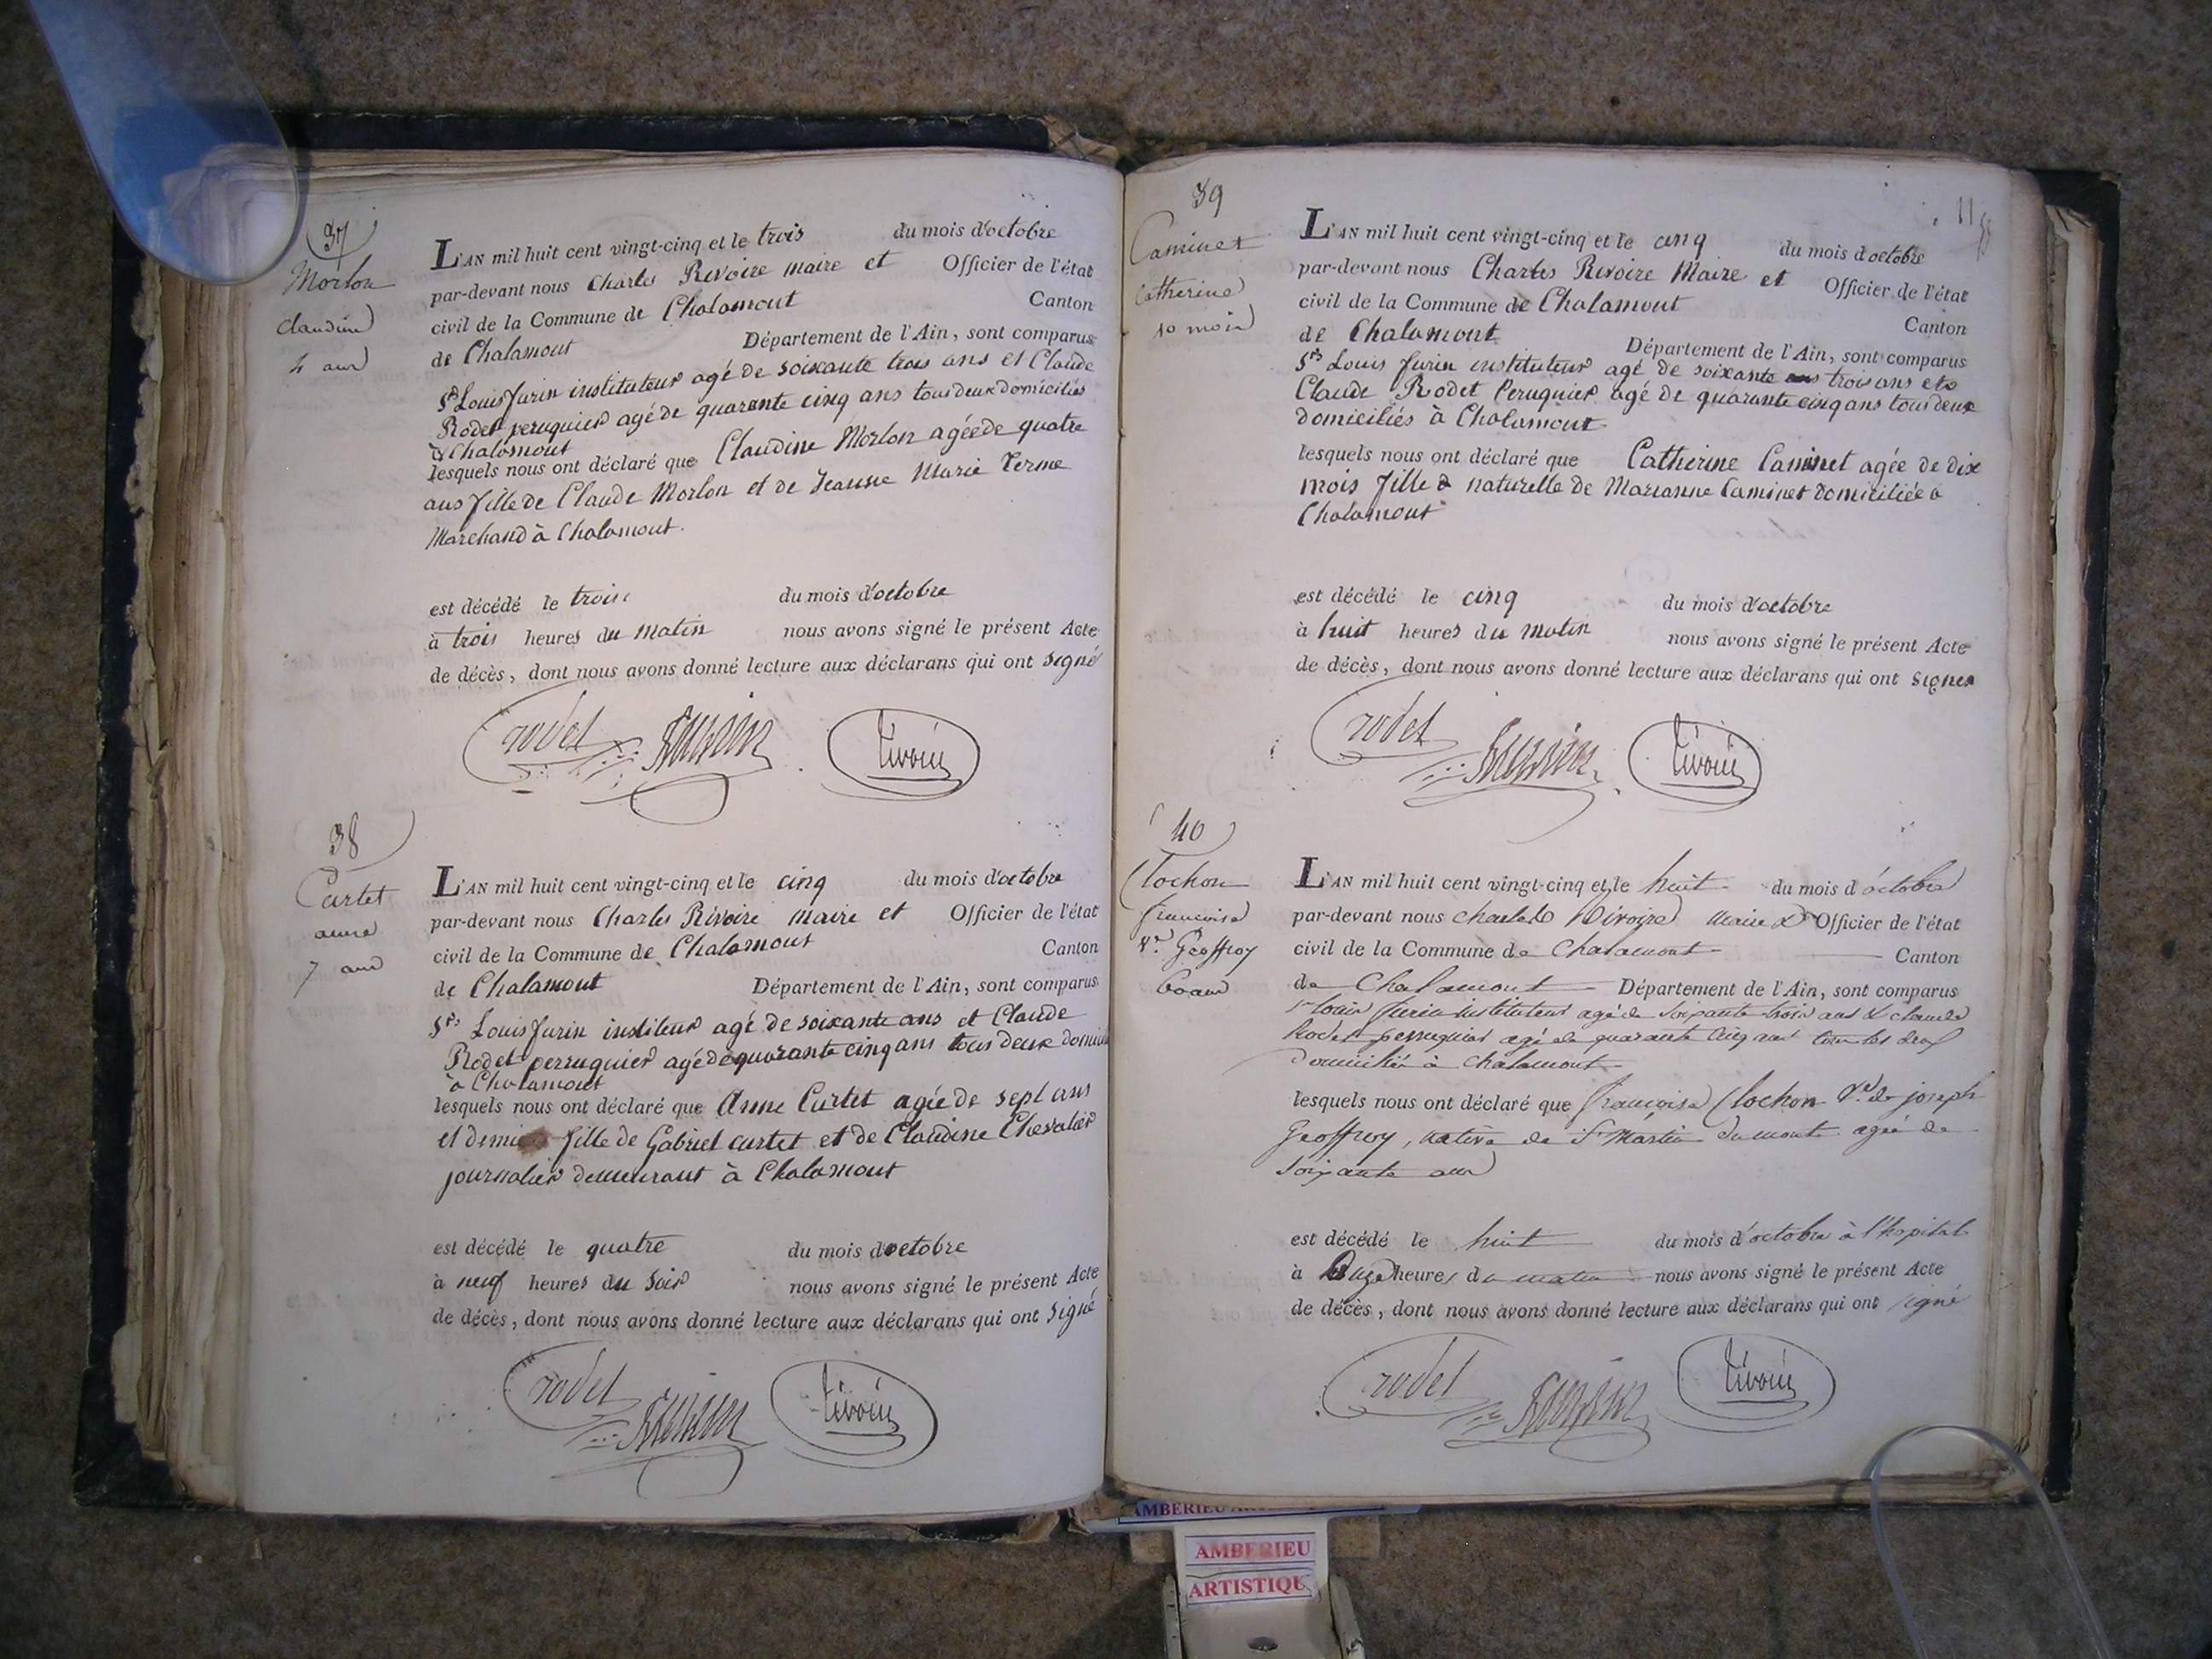 37
Morlon
Claudine
4 ans
L'AN mil huit cent vingt-cinq et le trois du mois d'octobre
par-devant nous Charles Rivoire maire et Officier de l'état
civil de la Commune de Chalamont Canton
de Chalamont Département de l'Ain, sont comparus
Srs Louis furin instituteur agé de soixante trois ans et Claude
Rodet peruquier agé de quarante cinq ans tous deux domiciliés
à Chalamont
lesquels nous ont déclaré que Claudine Morlon agée de quatre
ans fille de Claude Morlon et de Jeanne Marie Terme
Marchand à Chalamont.
est décédé le trois du mois d'octobre
à trois heures du matin nous avons signé le présent Acte
de décès, dont nous avons donné lecture aux déclarans qui ont signé
rodet furin rivoire
38
Curtet
anne
7 ans
L'AN mil huit cent vingt-cinq et le cinq du mois d'octobre
par-devant nous Charles Rivoire maire et Officier de l'état
civil de la Commune de Chalamont Canton
de Chalamont Département de l'Ain, sont comparus
Srs Louis furin instituteur agé de soixante ans et Claude
Rodet perruquier agé de quarante cinq ans tous deux domicil
à Chalamont
lesquels nous ont déclaré que Anne Curtet agée de sept ans
et demi fille de Gabriel curtet et de Claudine Chevalier
journalier demeurant à Chalamont
est décédé le quatre du mois d'octobre
à neuf heures du soir nous avons signé le présent Acte
de décès, dont nous avons donné lecture aux déclarans qui ont signé
rodet furin rivoire
39
Caminet
Catherine
10 mois
L'AN mil huit cent vingt-cinq et le cinq du mois d'octobre
par-devant nous Charles Rivoire Maire et Officier de l'état
civil de la Commune de Chalamont Canton
de Chalamont Département de l'Ain, sont comparus
Srs Louis furin instituteur agé de soixante ans trois ans et
Claude Rodet Peruquier agé de quarante cinq ans tous deux
domiciliés à Chalamont
lesquels nous ont déclaré que Catherine Caminet agée de dix
mois fille naturelle de Marianne Caminet domiciliée à
Chalamont
est décédé le cinq du mois d'octobre
à huit heures du matin nous avons signé le présent Acte
de décès, dont nous avons donné lecture aux déclarans qui ont signés
rodet furin rivoire
40
Clochon
francoise
Ve Geoffroy
60 ans
L'AN mil huit cent vingt-cinq et le huit du mois d'octobre
par-devant nous charles Rivoire maire & Officier de l'état
civil de la Commune de Chalamont Canton
de Chalamont Département de l'Ain, sont comparus
Sr louis furin instituteur agé de soixante trois ans & claude
Rodet perruquier agé de quarante cinq ans tous les deux
domiciliés à Chalamont
lesquels nous ont déclaré que françoise Clochon Ve de joseph
Geoffroy, native de St Martin du mont agée de
soixante ans
est décédé le huit du mois d'octobre à l'hopital
à onze heures du matin nous avons signé le présent Acte
de décès, dont nous avons donné lecture aux déclarans qui ont signé
rodet furin rivoire
AMBERIEU
AMBERIEU
ARTISTIQU